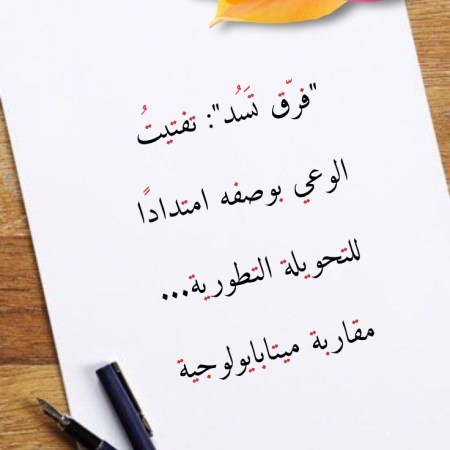 "فرّق تَسُد": تفتيتُ
الوعي بوصفه امتدادًا
للتحويلة التطورية...
مقاربة ميتابايولوجية